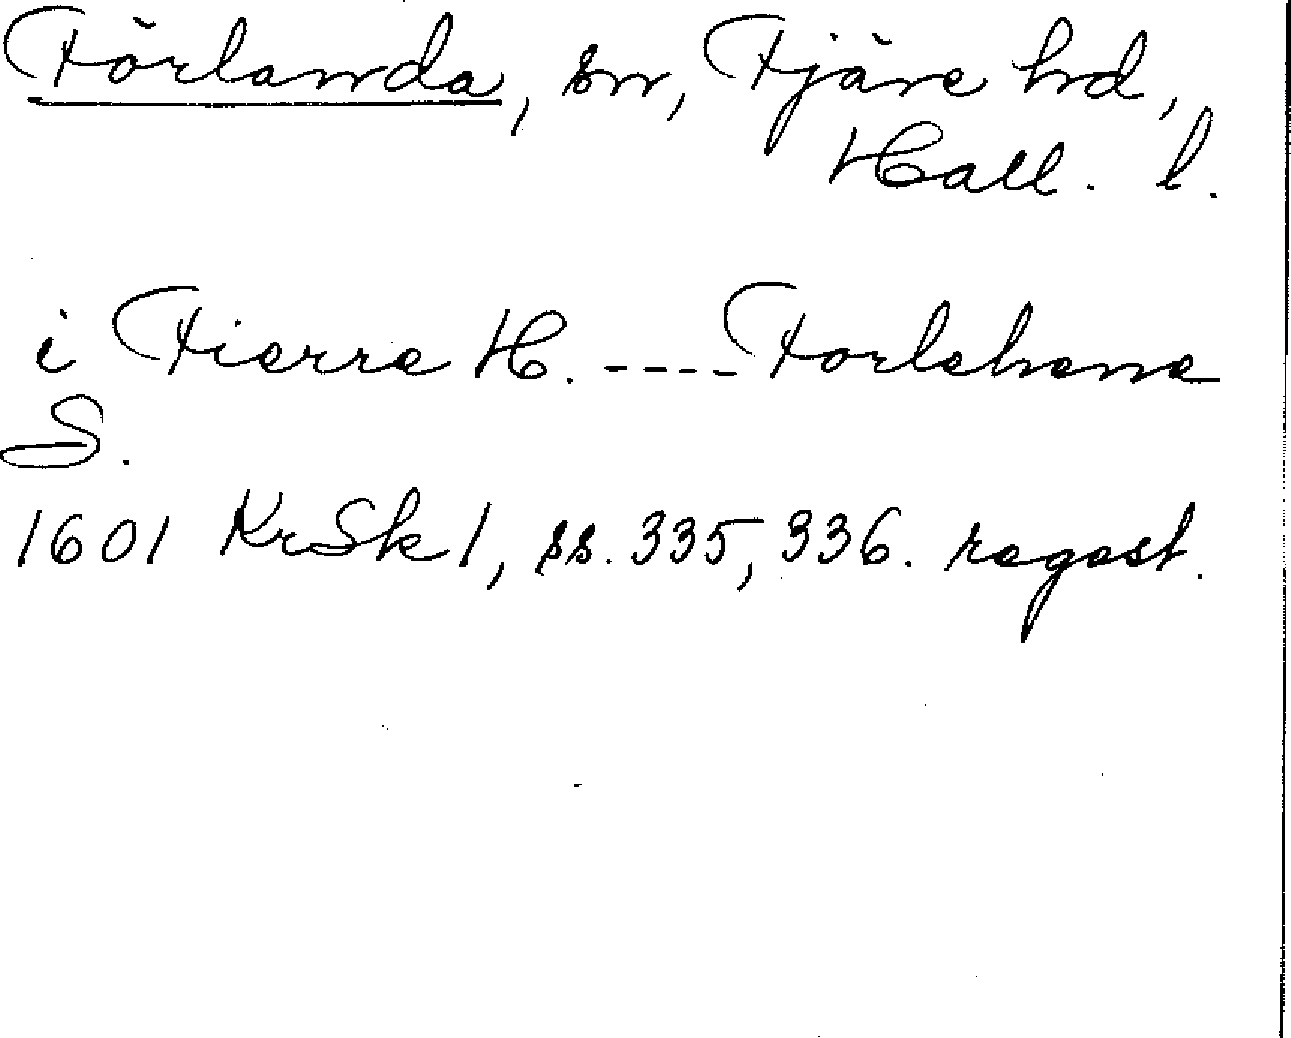 Förlanda, sn, Fjäre hd,
Hall. l.
i Fierre H. ---- Forlehene
S.
1601 KrSk 1, ss. 335, 336. regest.